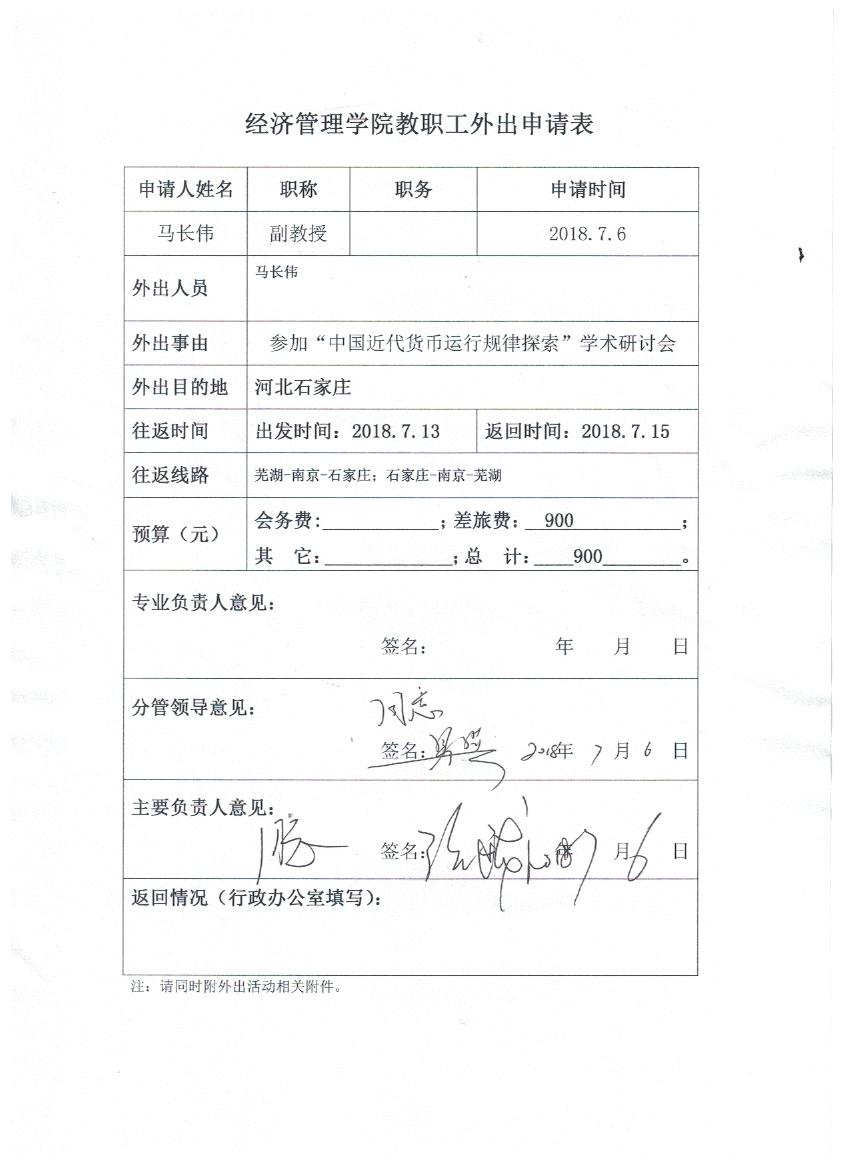 经济管理学院教职工外出申请表
申请人姓名 职称 职务 申请时间
马长伟 副教授 2018.7.6
外出人员 马长伟
外出事由 参加“中国近代货币运行规律探索”学术研讨会
外出目的地 河北石家庄
往返时间 出发时间：2018.7.13 返回时间：2018.7.15
往返线路 芜湖-南京-石家庄；石家庄-南京-芜湖
预算（元） 会务费：____________；差旅费：__900___________；
其 它：_____________；总 计：____900________。
专业负责人意见：
签名： 年 月 日
分管领导意见： 同意
签名： 2018年 7月 6 日
主要负责人意见：
签名： 7月 6 日
返回情况（行政办公室填写）：
注：请同时附外出活动相关附件。